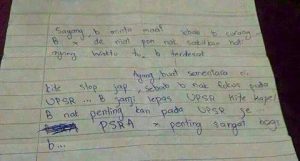 Sayang, b minta maaf sbab b curang
B x de niat pon nak sakitkan hati
ayang waktu tu, b terdesak
Ayang buat sementara ni
kite stop jap, sebab b nak fokus pada
UPSR ... B janji lepas UPSR kite kapel
B nak penting kan pada UPSR je
PSRA x penting sangat bagi
b...